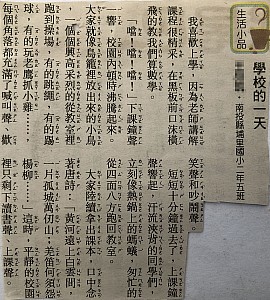 生活小品
學校的一天
南投縣埔里國小二年五班
我喜歡上學，因為老師講解
課程很精采，在黑板前口沫橫
飛的教我們算數學。
「噹！噹！噹！」下課鐘聲
一響，校園內頓時沸騰起來。
大家就像鳥籠裡放出來的小鳥
，個個興高采烈的從教室裡
跑到操場，有的跳繩、有的踢
球、有的玩老鷹抓小雞……
每個角落都充滿了喊叫聲、歡
笑聲和吵鬧聲。
短短十分鐘過去了，上課鐘
聲響起，汗流浹背的同學們，
立刻像熱鍋上的螞蟻，匆忙的
從四面八方跑回教室。
大家陸續拿出課本，口中念
著唐詩：「黃河遠上白雲間，
一片孤城萬仞山；羌笛何須怨
楊柳……」這時，平靜的校園
裡只剩下讀書聲、上課聲。